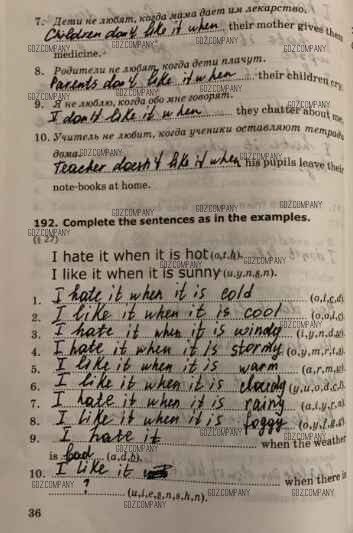 7. Дети не любят, когда мама дает им лекарство.
Children don't like it when their mother gives them
medicine.
8. Родители не любят, когда дети плачут.
Parents don't like it when their children cry.
9. Я не люблю, когда обо мне говорят.
I don't like it when they chatter about me.
10. Учитель не любит, когда ученики оставляют тетради
дома.
Teacher doesn't like it when his pupils leave their
note-books at home.
192. Complete the sentences as in the examples.
(§ 27)
I hate it when it is hot (o,t,h).
I like it when it is sunny (u,y,n,s,n).
1. I hate it when it is cold (o,l,c,d).
2. I like it when it is cool (o,o,l,c).
3. I hate it when it is windy (i,y,n,d,w).
4. I hate it when it is stormy (o,y,m,r,t,s).
5. I like it when it is warm (a,r,m,w).
6. I like it when it is cloudy (y,u,o,d,c,l).
7. I hate it when it is rainy (a,i,y,r,n).
8. I like it when it is foggy (o,y,f,g,g).
9. I hate it when the weather
is bad (a,d,b).
10. I like it when there is
? (u,i,e,g,n,s,h,n).
36
GDZ.COMPANY